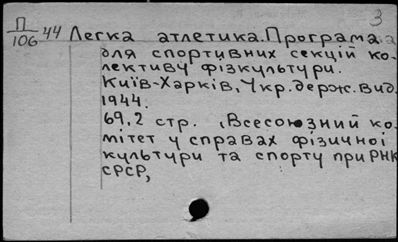 3
П/106 44 Легка атлетика. Програма
для спортивних секцій ко-
лективу фізкультури.
Київ-Харків, Укр. держ. вид.
1944.
69,2 стр. (Всесоюзний ко-
мітет у справах фізичної
культури та спорту при РНК
СРСР,